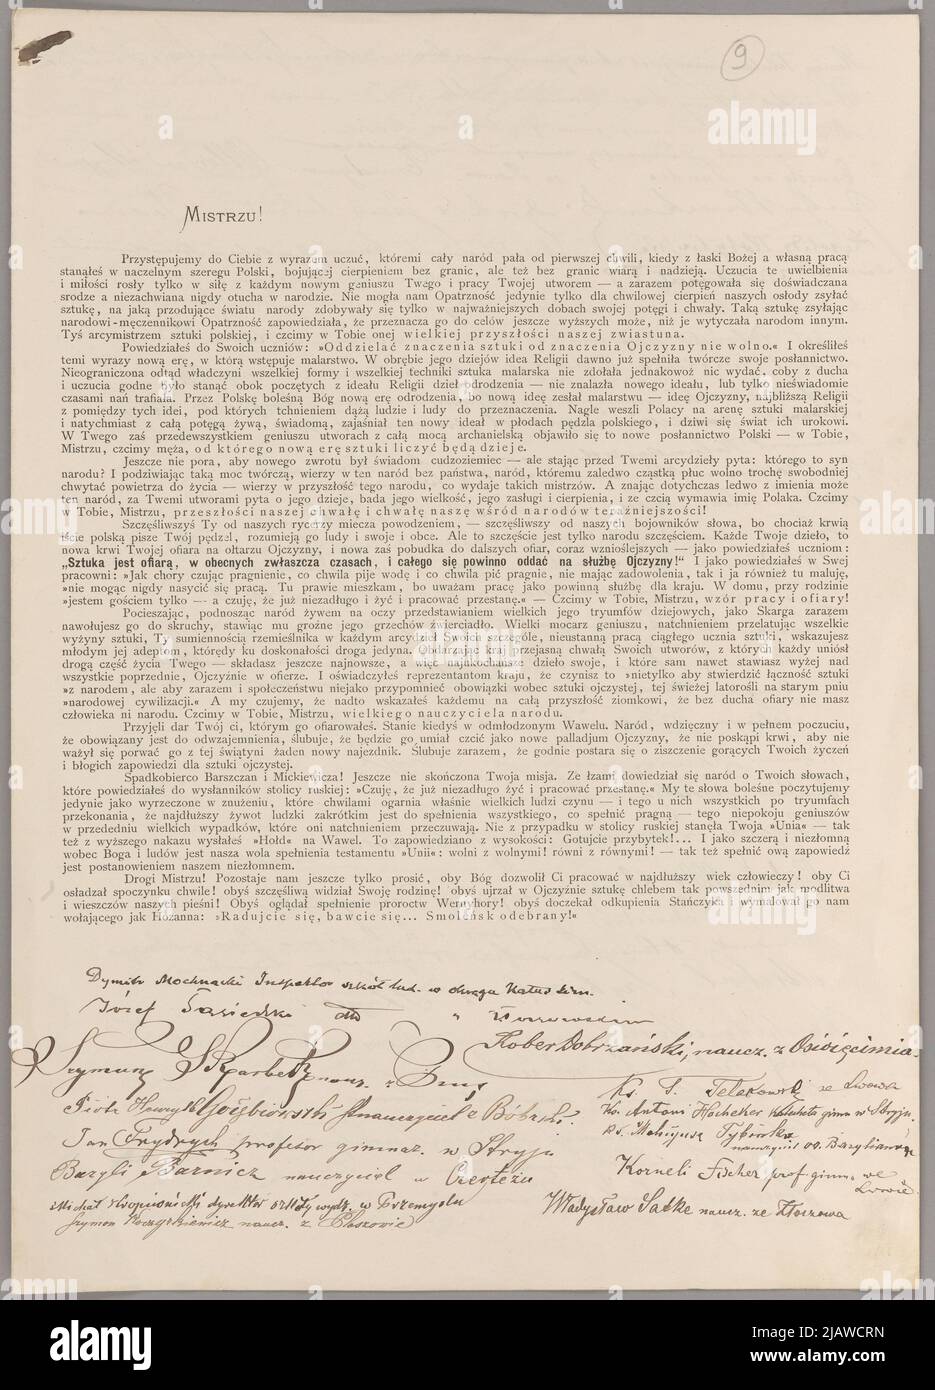 9
MISTRZU!
Przystępujemy do Ciebie z wyrazem uczuć, któremi cały naród pała od pierwszej chwili, kiedy z łaski Bożej a własną pracą
stanąłeś w naczelnym szeregu Polski, bojującej cierpieniem bez granic, ale też bez granic wiarą i nadzieją. Uczucia te uwielbienia
i miłości rosły tylko w siłę z każdym nowym geniuszu Twego i pracy Twojej utworem — a zarazem potęgowała się doświadczana
srodze a niezachwiana nigdy otucha w narodzie. Nie mogła nam Opatrzność jedynie tylko dla chwilowej cierpień naszych osłody zsyłać
sztukę, na jaką przodujące światu narody zdobywały się tylko w najważniejszych dobach swojej potęgi i chwały. Taką sztukę zsyłając
narodowi-męczennikowi Opatrzność zapowiedziała, że przeznacza go do celów jeszcze wyższych może, niż je wytyczała narodom innym.
Tyś arcymistrzem sztuki polskiej, i czcimy w Tobie onej wielkiej przyszłości naszej zwiastuna.
Powiedziałeś do Swoich uczniów: »Oddzielać znaczenia sztuki od znaczenia Ojczyzny nie wolno.« I określiłeś
temi wyrazy nową erę, w którą wstępuje malarstwo. W obrębie jego dziejów idea Religii dawno już spełniła twórcze swoje posłannictwo.
Nieograniczona odtąd władczyni wszelkiej formy i wszelkiej techniki sztuka malarska nie zdołała jednakowoż nic wydać, coby z ducha
i uczucia godne było stanąć obok poczętych z ideału Religii dzieł odrodzenia — nie znalazła nowego ideału, lub tylko nieświadomie
czasami nań trafiała. Przez Polskę bolesną Bóg nową erę odrodzenia, bo nową ideę zesłał malarstwu — ideę Ojczyzny, najbliższą Religii
z pomiędzy tych idei, pod których tchnieniem dążą ludzie i ludy do przeznaczenia. Nagle weszli Polacy na arenę sztuki malarskiej
i natychmiast z całą potęgą żywą, świadomą, zajaśniał ten nowy ideał w płodach pędzla polskiego, i dziwi się świat ich urokowi.
W Twego zaś przedewszystkiem geniuszu utworach z całą mocą archanielską objawiło się to nowe posłannictwo Polski — w Tobie,
Mistrzu, czcimy męża, od którego nową erę sztuki liczyć będą dzieje.
Jeszcze nie pora, aby nowego zwrotu był świadom cudzoziemiec — ale stając przed Twemi arcydzieły pyta: którego to syn
narodu? I podziwiając taką moc twórczą, wierzy w ten naród bez państwa, naród, któremu zaledwo cząstką płuc wolno trochę swobodniej
chwytać powietrza do życia — wierzy w przyszłość tego narodu, co wydaje takich mistrzów. A znając dotychczas ledwo z imienia może
ten naród, za Twemi utworami pyta o jego dzieje, bada jego wielkość, jego zasługi i cierpienia, i ze czcią wymawia imię Polaka. Czcimy
w Tobie, Mistrzu, przeszłości naszej chwałę i chwałę naszę wśród narodów teraźniejszości!
Szczęśliwszyś Ty od naszych rycerzy miecza powodzeniem, — szczęśliwszy od naszych bojowników słowa, bo chociaż krwią
iście polską pisze Twój pędzel, rozumieją go ludy i swoje i obce. Ale to szczęście jest tylko narodu szczęściem. Każde Twoje dzieło, to
nowa krwi Twojej ofiara na ołtarzu Ojczyzny, i nowa zaś pobudka do dalszych ofiar, coraz wznioślejszych — jako powiedziałeś uczniom:
„Sztuka jest ofiarą, w obecnych zwłaszcza czasach, i całego się powinno oddać na służbę Ojczyzny!" I jako powiedziałeś w Swej
pracowni: »Jak chory czując pragnienie, co chwila pije wodę i co chwila pić pragnie, nie mając zadowolenia, tak i ja również tu maluję,
»nie mogąc nigdy nasycić się pracą. Tu prawie mieszkam, bo uważam pracę jako powinną służbę dla kraju. W domu, przy rodzinie
»jestem gościem tylko — a czuję, że już niezadługo i żyć i pracować przestanę.« — Czcimy w Tobie, Mistrzu, wzór pracy i ofiary!
Pocieszając, podnosząc naród żywem na oczy przedstawianiem wielkich jego tryumfów dziejowych, jako Skarga zarazem
nawołujesz go do skruchy, stawiąc mu groźne jego grzechów źwierciadło. Wielki mocarz geniuszu, natchnieniem przelatując wszelkie
wyżyny sztuki, Ty sumiennością rzemieślnika w każdym arcydzieł Swoich szczególe, nieustanną pracą ciągłego ucznia sztuki, wskazujesz
młodym jej adeptom, którędy ku doskonałości droga jedyna. Obdarzając kraj przejasną chwałą Swoich utworów, z których każdy uniósł
drogą część życia Twego — składasz jeszcze najnowsze, a więc najukochańsze dzieło swoje, i które sam nawet stawiasz wyżej nad
wszystkie poprzednie, Ojczyźnie w ofierze. I oświadczyłeś reprezentantom kraju, że czynisz to »nietylko aby stwierdzić łączność sztuki
»z narodem, ale aby zarazem i społeczeństwu niejako przypomnieć obowiązki wobec sztuki ojczystej, tej świeżej latorośli na starym pniu
»narodowej cywilizacji.« A my czujemy, że nadto wskazałeś każdemu na całą przyszłość ziomkowi, że bez ducha ofiary nie masz
człowieka ni narodu. Czcimy w Tobie, Mistrzu, wielkiego nauczyciela narodu.
Przyjęli dar Twój ci, którym go ofiarowałeś. Stanie kiedyś w odmłodzonym Wawelu. Naród, wdzięczny i w pełnem poczuciu,
że obowiązany jest do odwzajemnienia, ślubuje, że będzie go umiał czcić jako nowe palladjum Ojczyzny, że nie poskąpi krwi, aby nie
ważył się porwać go z tej świątyni żaden nowy najezdnik. Ślubuje zarazem, że godnie postara się o ziszczenie gorących Twoich życzeń
i błogich zapowiedzi dla sztuki ojczystej.
Spadkobierco Barszczan i Mickiewicza! Jeszcze nie skończona Twoja misja. Ze łzami dowiedział się naród o Twoich słowach,
które powiedziałeś do wysłanników stolicy ruskiej: »Czuję, że już niezadługo żyć i pracować przestanę.« My te słowa boleśne poczytujemy
jedynie jako wyrzeczone w znużeniu, które chwilami ogarnia właśnie wielkich ludzi czynu — i tego u nich wszystkich po tryumfach
przekonania, że najdłuższy żywot ludzki zakrótkim jest do spełnienia wszystkiego, co spełnić pragną — tego niepokoju geniuszów
w przededniu wielkich wypadków, które oni natchnieniem przeczuwają. Nie z przypadku w stolicy ruskiej stanęła Twoja »Unia« — tak
też z wyższego nakazu wysłałeś »Hołd« na Wawel. To zapowiedziano z wysokości: Gotujcie przybytek!... I jako szczerą i niezłomną
wobec Boga i ludów jest nasza wola spełnienia testamentu »Unii«: wolni z wolnymi! równi z równymi! — tak też spełnić ową zapowiedź
jest postanowieniem naszem niezłomnem.
Drogi Mistrzu! Pozostaje nam jeszcze tylko prosić, aby Bóg dozwolił Ci pracować w najdłuższy wiek człowieczy! oby Ci
osładzał spoczynku chwile! obyś szczęśliwą widział Swoję rodzinę! obyś ujrzał w Ojczyźnie sztukę chlebem tak powszednim jak modlitwa
i wieszczów naszych pieśni! Obyś oglądał spełnienie proroctw Wernyhory! obyś doczekał odkupienia Stańczyka i wymalował go nam
wołającego jak Hozanna: »Radujcie się, bawcie się... Smoleńsk odebrany!«
Dymitr Mochnacki Inspektor szkół lud. w okręgu
Józef
Rober Dobrzański, naucz. z Oświęcimia.
Szymon naucz. z
Ks. ze Lwowa
Piotr Henryk nauczyciel z Bóbrki.
Ks. Antoni katecheta gimn w Stryju.
Jan Frydrych profesor gimnaz. w Stryju
nauczyciel oo. Bazylianów
Bazyli Barnicz nauczyciel w
Korneli Fischer prof gimn. we Lwowie
Michał dyrektor szkoły wydz. w Przemyślu
Władysław Satke naucz. ze Złoczowa
Szymon naucz. z
alamy
Image ID: 2JAWCRN
www.alamy.com